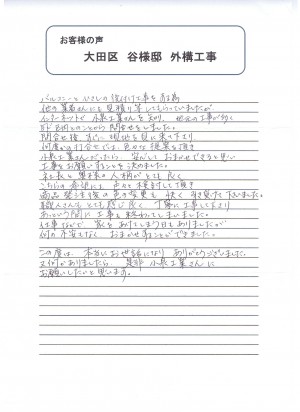 お客様の声
大田区 谷様邸 外構工事
バルコニーと ひさしの後付け工事を
他の業者さんにも見積り等してもらっていましたが
インターネットで 小泉工業さんを知り、地元の工事が多く
問合せをしました。
問合せ後、すぐに現地を見に来て下さり
何度かの打合せでは、色々な提案を頂き
小泉工業さんだったら 安心して おまかせできると思い
工事をお願いすることを決めました。
社長も 奥様の人柄がとても良く
こちらの希望にも 色々と検討して頂き
商品発注後の色の変更も 快く 引き受けて下さいました。
職人さんもとても感じ良く 丁寧に工事して下さり
あっという間に 工事も終わってしまいました。
仕事などで 家をあけてしまう日もありましたが
何の不安もなく おまかせすることができました。
この度は 本当にお世話になり ありがとうございました。
又何かありましたら 是非 小泉工業さんに
お願いしたいと思います。